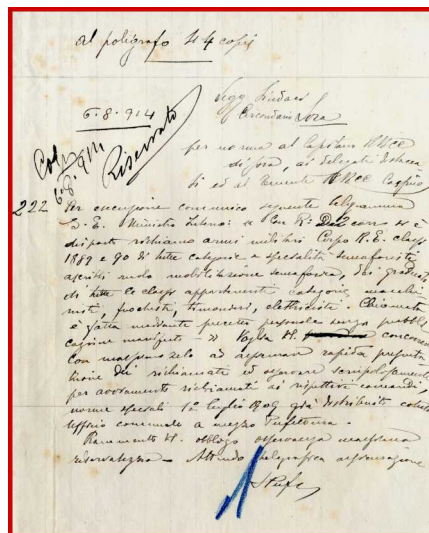 al poligrafo 44 copie
6.8.914
Sigg. Sindaci
Circondario Sora
Riservato
6.8.914
per norma al Capitano RRCC
di Sora, ai Delegati
ed al Tenente RRCC Cassino
222 Per esecuzione comunico seguente telegramma
S. E. Ministro Interno: « Con R. Decreto si è
disposto richiamo armi militari Corpo R. E. classi
1889 e 90 di tutte categorie e specialità semaforisti
ascritti ruolo mobilitazione semaforica, dei graduati
di tutte le classi appartenenti categorie macchi
nisti, fuochisti, timonieri, elettricisti. Chiamata
è fatta mediante precetto personale senza pubbli
cazione manifesti » Voglia
con massimo zelo ad assicurare rapida presenta
zione dei richiamati ed osservare scrupolosamente
per avviamento richiamati ai rispettivi comandi
norme speciali 1º luglio 1909 già distribuite
ufficio comunale a mezzo Prefettura.
Rammento obbligo osservanza massima
riservatezza – Attendo telegrafica assicurazione